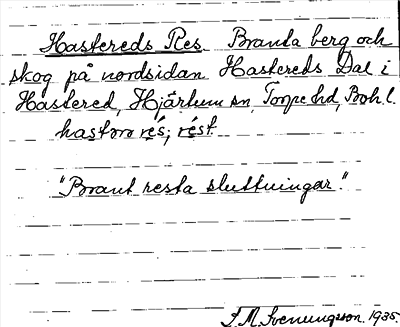 Hastereds Res. Branta berg och
skog på nordsidan Hastereds Dal i
Hastered, Hjärtum sn, Torpe hd, Boh. l.
hastərə rés; rést
"Brant resta sluttningar".
S. M. Svenungsson. 1935.